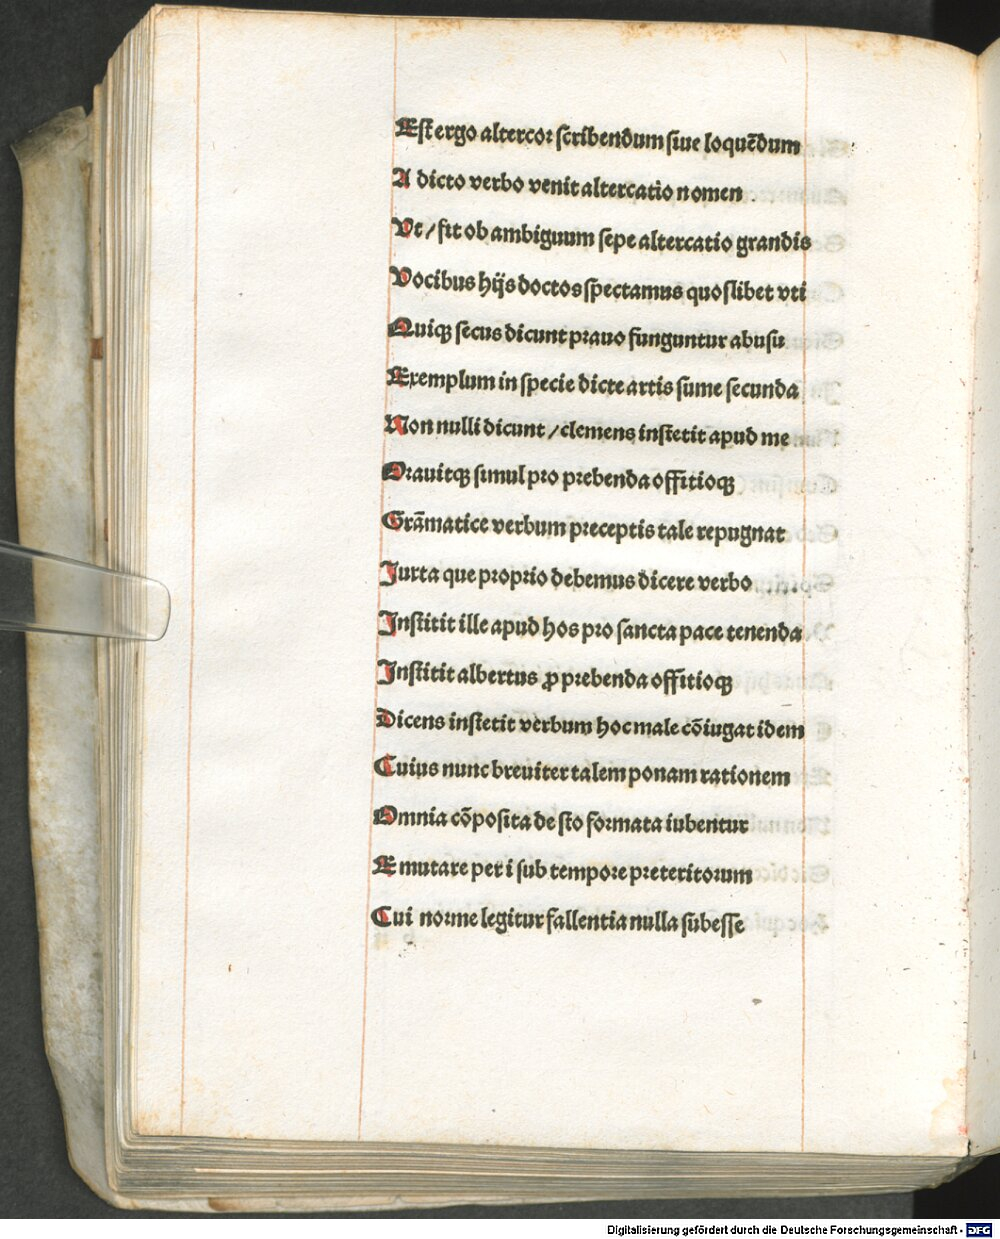 Est ergo altercor scribendum siue loquēdum
A dicto verbo venit altercatio nomen
Vt / fit ob ambiguum sepe altercatio grandis
Vocibus hijs doctos spectamus quoslibet vti
Quiqꝫ secus dicunt prauo funguntur abusu
Exemplum in specie dicte artis sume secunda
Non nulli dicunt / clemens instetit apud me
Orauitqꝫ simul pro prebenda offitioqꝫ
Grāmatice verbum preceptis tale repugnat
Iuxta que proprio debemus dicere verbo
Institit ille apud hos pro sancta pace tenenda
Institit albertus ꝓ prebenda offitioqꝫ
Dicens instetit verbum hoc male cōiugat idem
Cuius nunc breuiter talem ponam rationem
Omnia cōposita de sto formata iubentur
E mutare per i sub tempore preteritorum
Cui norme legitur fallentia nulla subesse
Digitalisierung gefördert durch die Deutsche Forschungsgemeinschaft - DFG